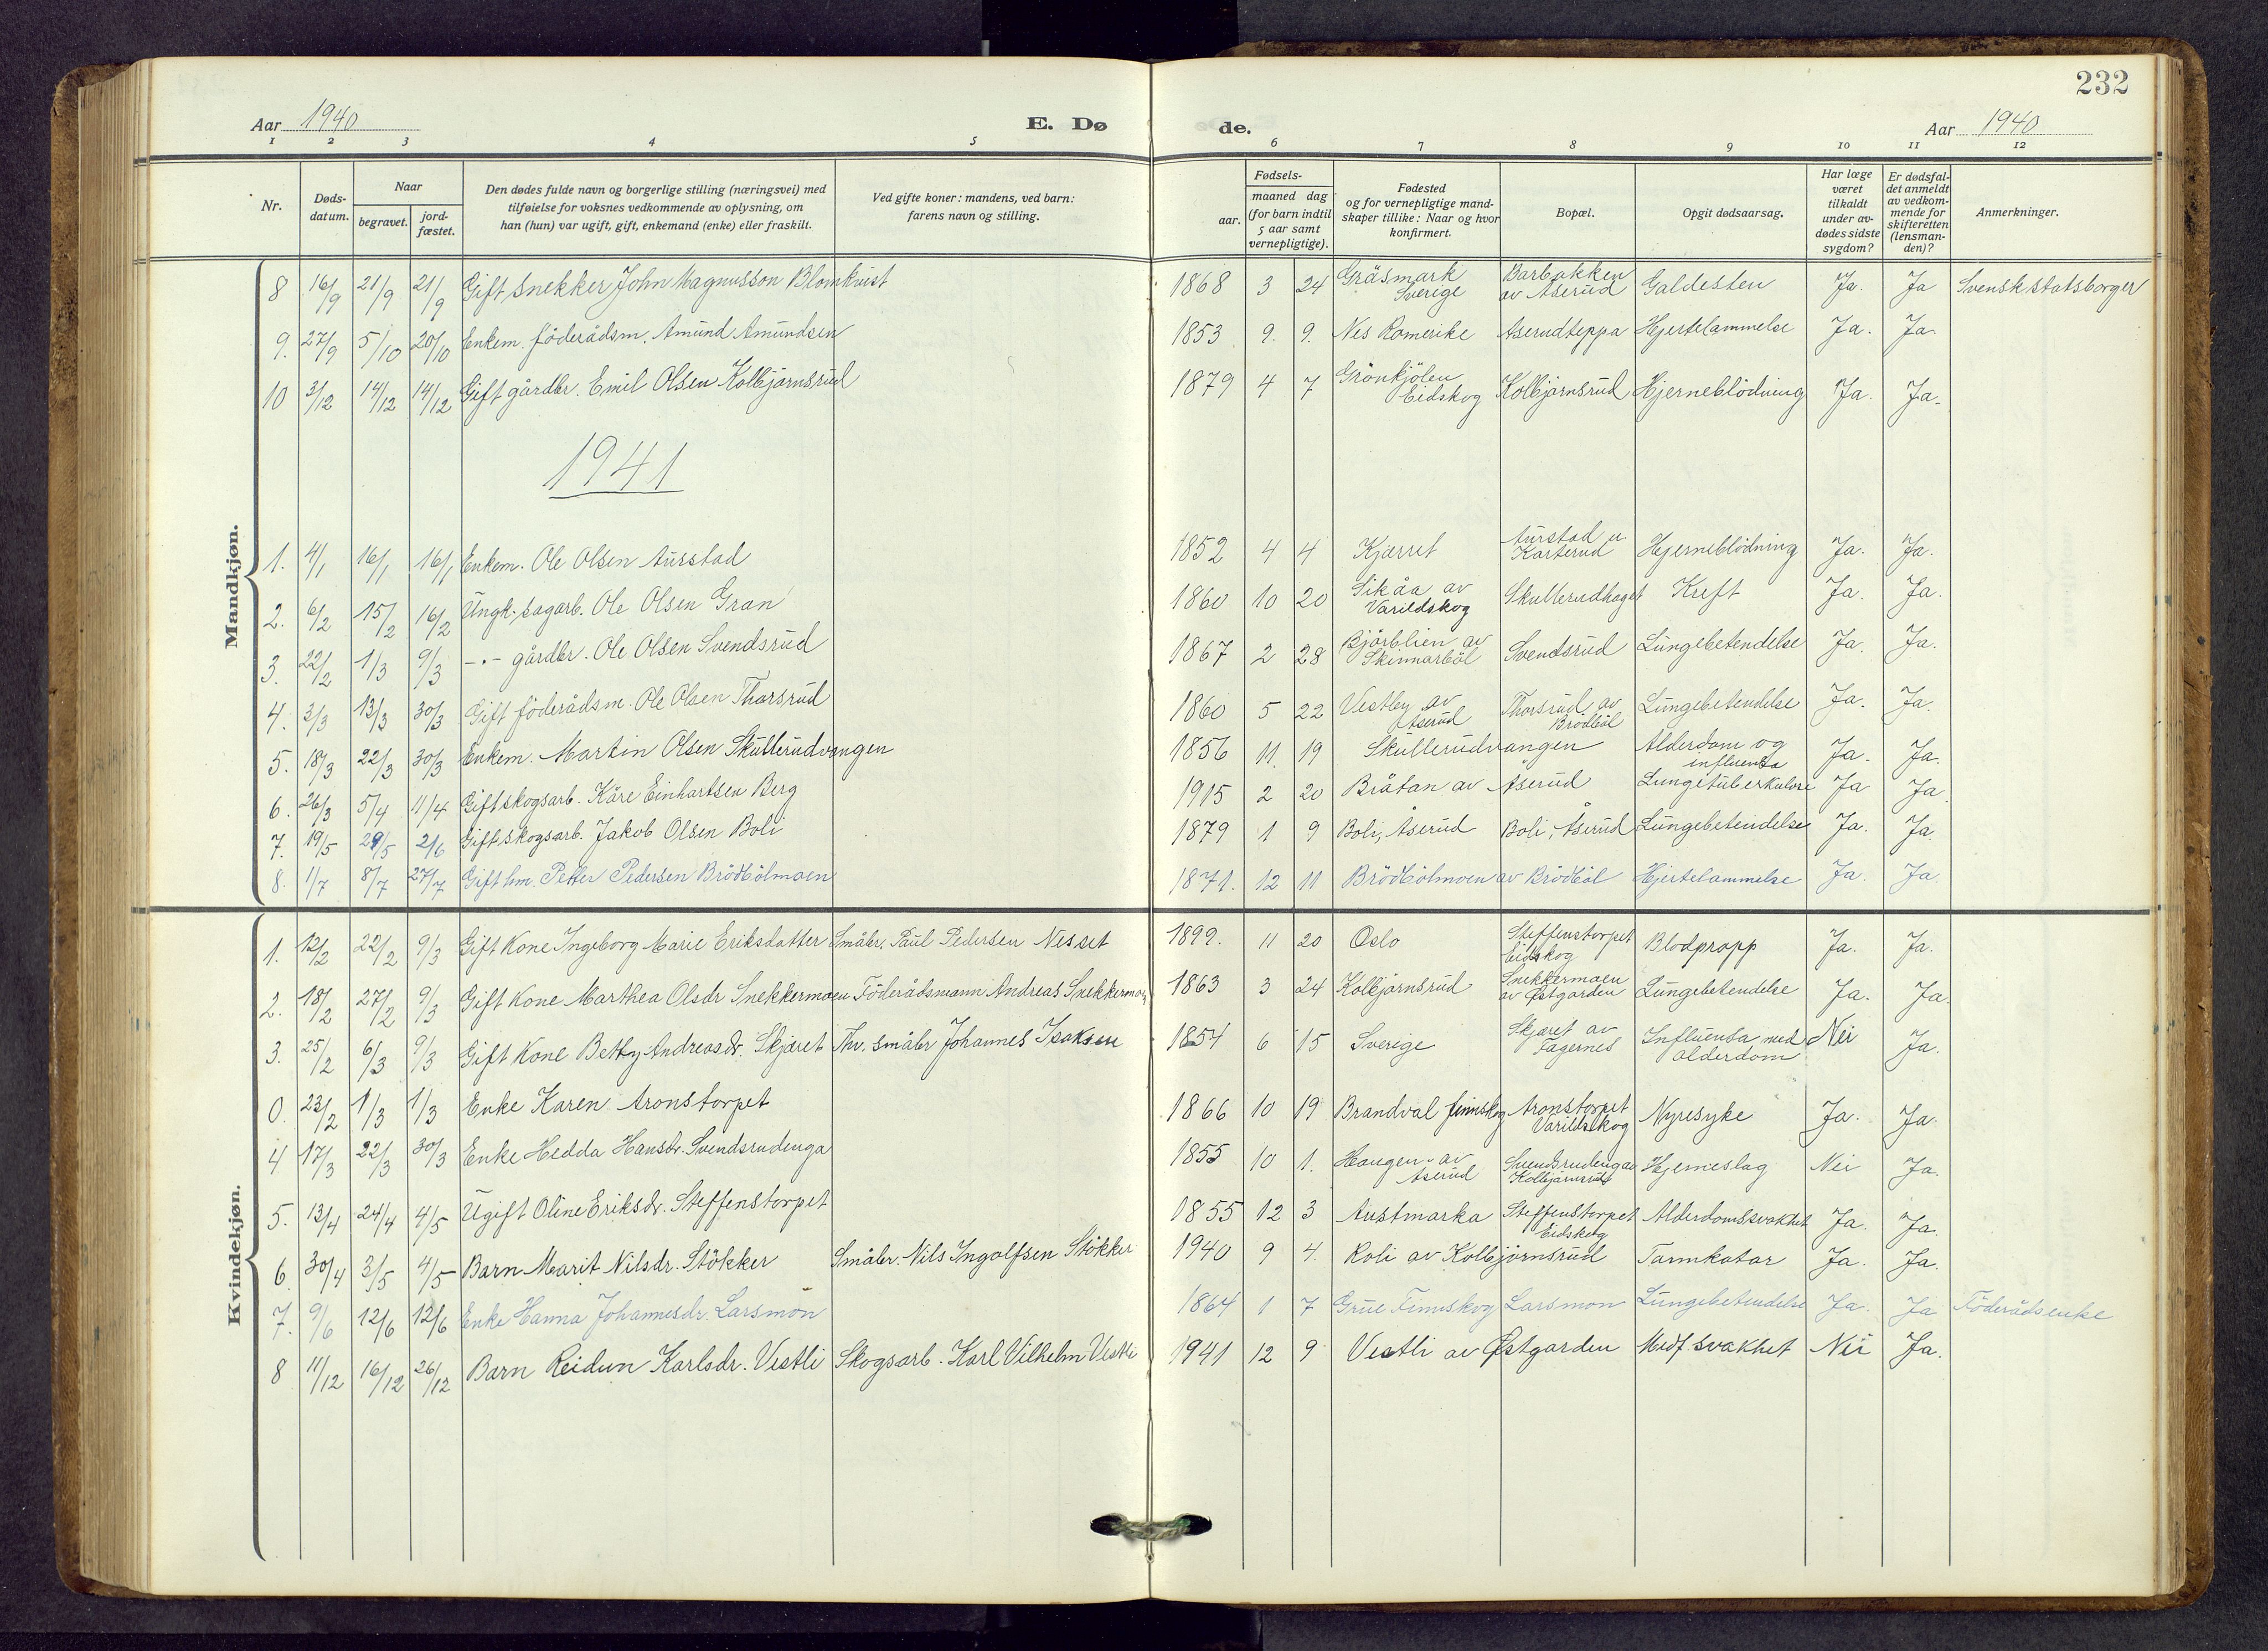 232
Aar 1940 E. Dø de. Aar 1940
1 2 3 4 5 6 7 8 9 10 11 12
Nr. | Døds-datum. | Naar begravet. | jord-fæstet. | Den dødes fulde navn og borgerlige stilling (næringsvei) med tilføielse for voksnes vedkommende av oplysning, om han (hun) var ugift, gift, enkemand (enke) eller fraskilt. | Ved gifte koner: mandens, ved barn: farens navn og stilling. | Fødsels- aar. | maaned dag (for barn indtil 5 aar samt vernepligtige). | Fødested og for vernepligtige mand-skaper tillike: Naar og hvor konfirmert. | Bopæl. | Opgit dødsaarsag. | Har læge været tilkaldt under av-dødes sidste sygdom? | Er dødsfal-det anmeldt av vedkom-mende for skifteretten (lensman-den)? | Anmerkninger.
Mandkjøn.
8 16/9 21/9 21/9 Gift snekker John Magnusson Blomkvist 1868 3 24 Gräsmark Sverige Barbakken av Åserud Galdesten Ja. Ja Svensk statsborger
9. 27/9 5/10 20/10 Enkem. föderådsm. Amund Amundsen 1853 9. 9. Nes Romerike Åserudteppa Hjertelammelse Ja. Ja.
10 3/12 14/12 14/12 Gift gårdbr. Emil Olsen Kolbjørnsrud 1879 4 7 Grönkjölen Eidskog Kolbjørnsrud Hjerneblödning Ja. Ja.
1941
1. 4/1 16/1 16/1 Enkem. Ole Olsen Aurstad 1852 4 4 Kjærret Aurstad u Karterud Hjerneblödning Ja. Ja.
2. 6/2 15/2 16/2 Ungk. sagarb. Ole Olsen Gran 1860 10 20 Sikåa av Varildskog Skullerudhaget Kreft Ja. Ja.
3. 22/2 1/3 9/3 -"- gårdbr. Ole Olsen Svendsrud 1867 2 28 Bjørblien av Skinnarböl Svendsrud Lungebetendelse Ja. Ja.
4. 3/3 13/3 30/3 Gift föderådsm. Ole Olsen Thorsrud 1860 5 22 Vestby av Åserud Thorsrud av Brödböl Lungebetendelse Ja. Ja.
5. 18/3 22/3 30/3 Enkem. Martin Olsen Skullerudvangen 1856 11. 19 Skullerudvangen Alderdom og influensa Ja. Ja.
6. 26/3 5/4 11/4 Gift skogsarb. Kåre Einhartsen Berg 1915 2 20 Bråtan av Åserud Lungetuberkulose Ja Ja.
7. 19/5 29/5 2/6 Gift skogsarb. Jakob Olsen Boli 1879 1 9 Boli, Åserud Boli, Åserud Lungebetendelse Ja. Ja.
8. 1/7 8/7 27/7 Gift hm. Petter Pedersen Brödbölmoen 1871. 12 11 Brödbölmoen av Brödböl Hjertelammelse Ja. Ja.
Kvindekjøn.
1. 12/2 22/2 9/3 Gift Kone Ingeborg Marie Eriksdatter Småbr. Paul Pedersen Nesset 1899. 11 20 Oslo Steffenstorpet Eidskog Blodpropp Ja. Ja.
2. 18/2 27/2 9/3 Gift Kone Marthea Olsdr Snekkermoen Föderådsmann Andreas Snekkermoen 1863 3 24 Kolbjørnsrud Snekkermoen av Østgarden Lungebetendelse Ja. Ja.
3. 25/2 6/3 9/3 Gift Kone Betty Andreasdr. Skjæret Fhv. småbr Johannes Isaksen 1854 6 15 Sverige Skjæret av Fagernes Influensa med alderdom Nei Ja.
0. 23/2 1/3 1/3 Enke Karen Aronstorpet 1866 10 19 Brandval finnskog Aronstorpet Varildskog Nyresyke Ja. Ja.
4 17/3 22/3 30/3 Enke Hedda Hansdr. Svendsrudenga 1855 10 1. Haugen av Åserud Svendsrudenga Kolbjørnsrud Hjerneslag Nei Ja.
5. 13/4 24/4 4/5 Ugift Oline Eriksdr. Steffenstorpet 1855 12 3 Austmarka Steffenstorpet Eidskog Alderdomssvakhet Ja. Ja.
6. 30/4 3/5 4/5 Barn Marit Nilsdr. Stökker Småbr. Nils Ingolfsen Stökker 1940 9 4. Roli av Kolbjørnsrud Tarmkatar Ja. Ja.
7. 9/6 12/6 12/6 Enke Hanna Johannesdr. Larsmon 1864 1 7 Grue Finnskog Larsmon Lungebetendelse Ja. Ja Föderådsenke
8 11/12 16/12 26/12 Barn Reidun Karlsdr. Vestli Skogsarb. Karl Vilhelm Vestli 1941 12 9 Vestli av Østgarden Medf. svakhet Nei Ja.